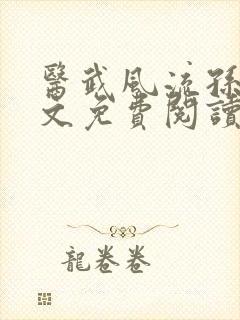 醫武風流孫
文免費閱讀
龍卷卷